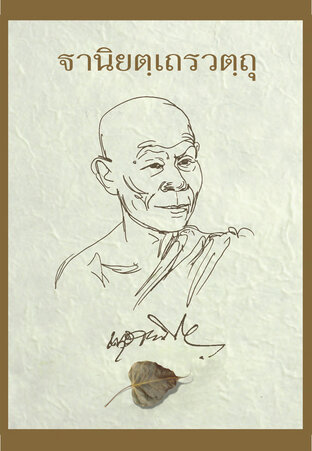 ฐานิยตฺเถรวตฺถุ